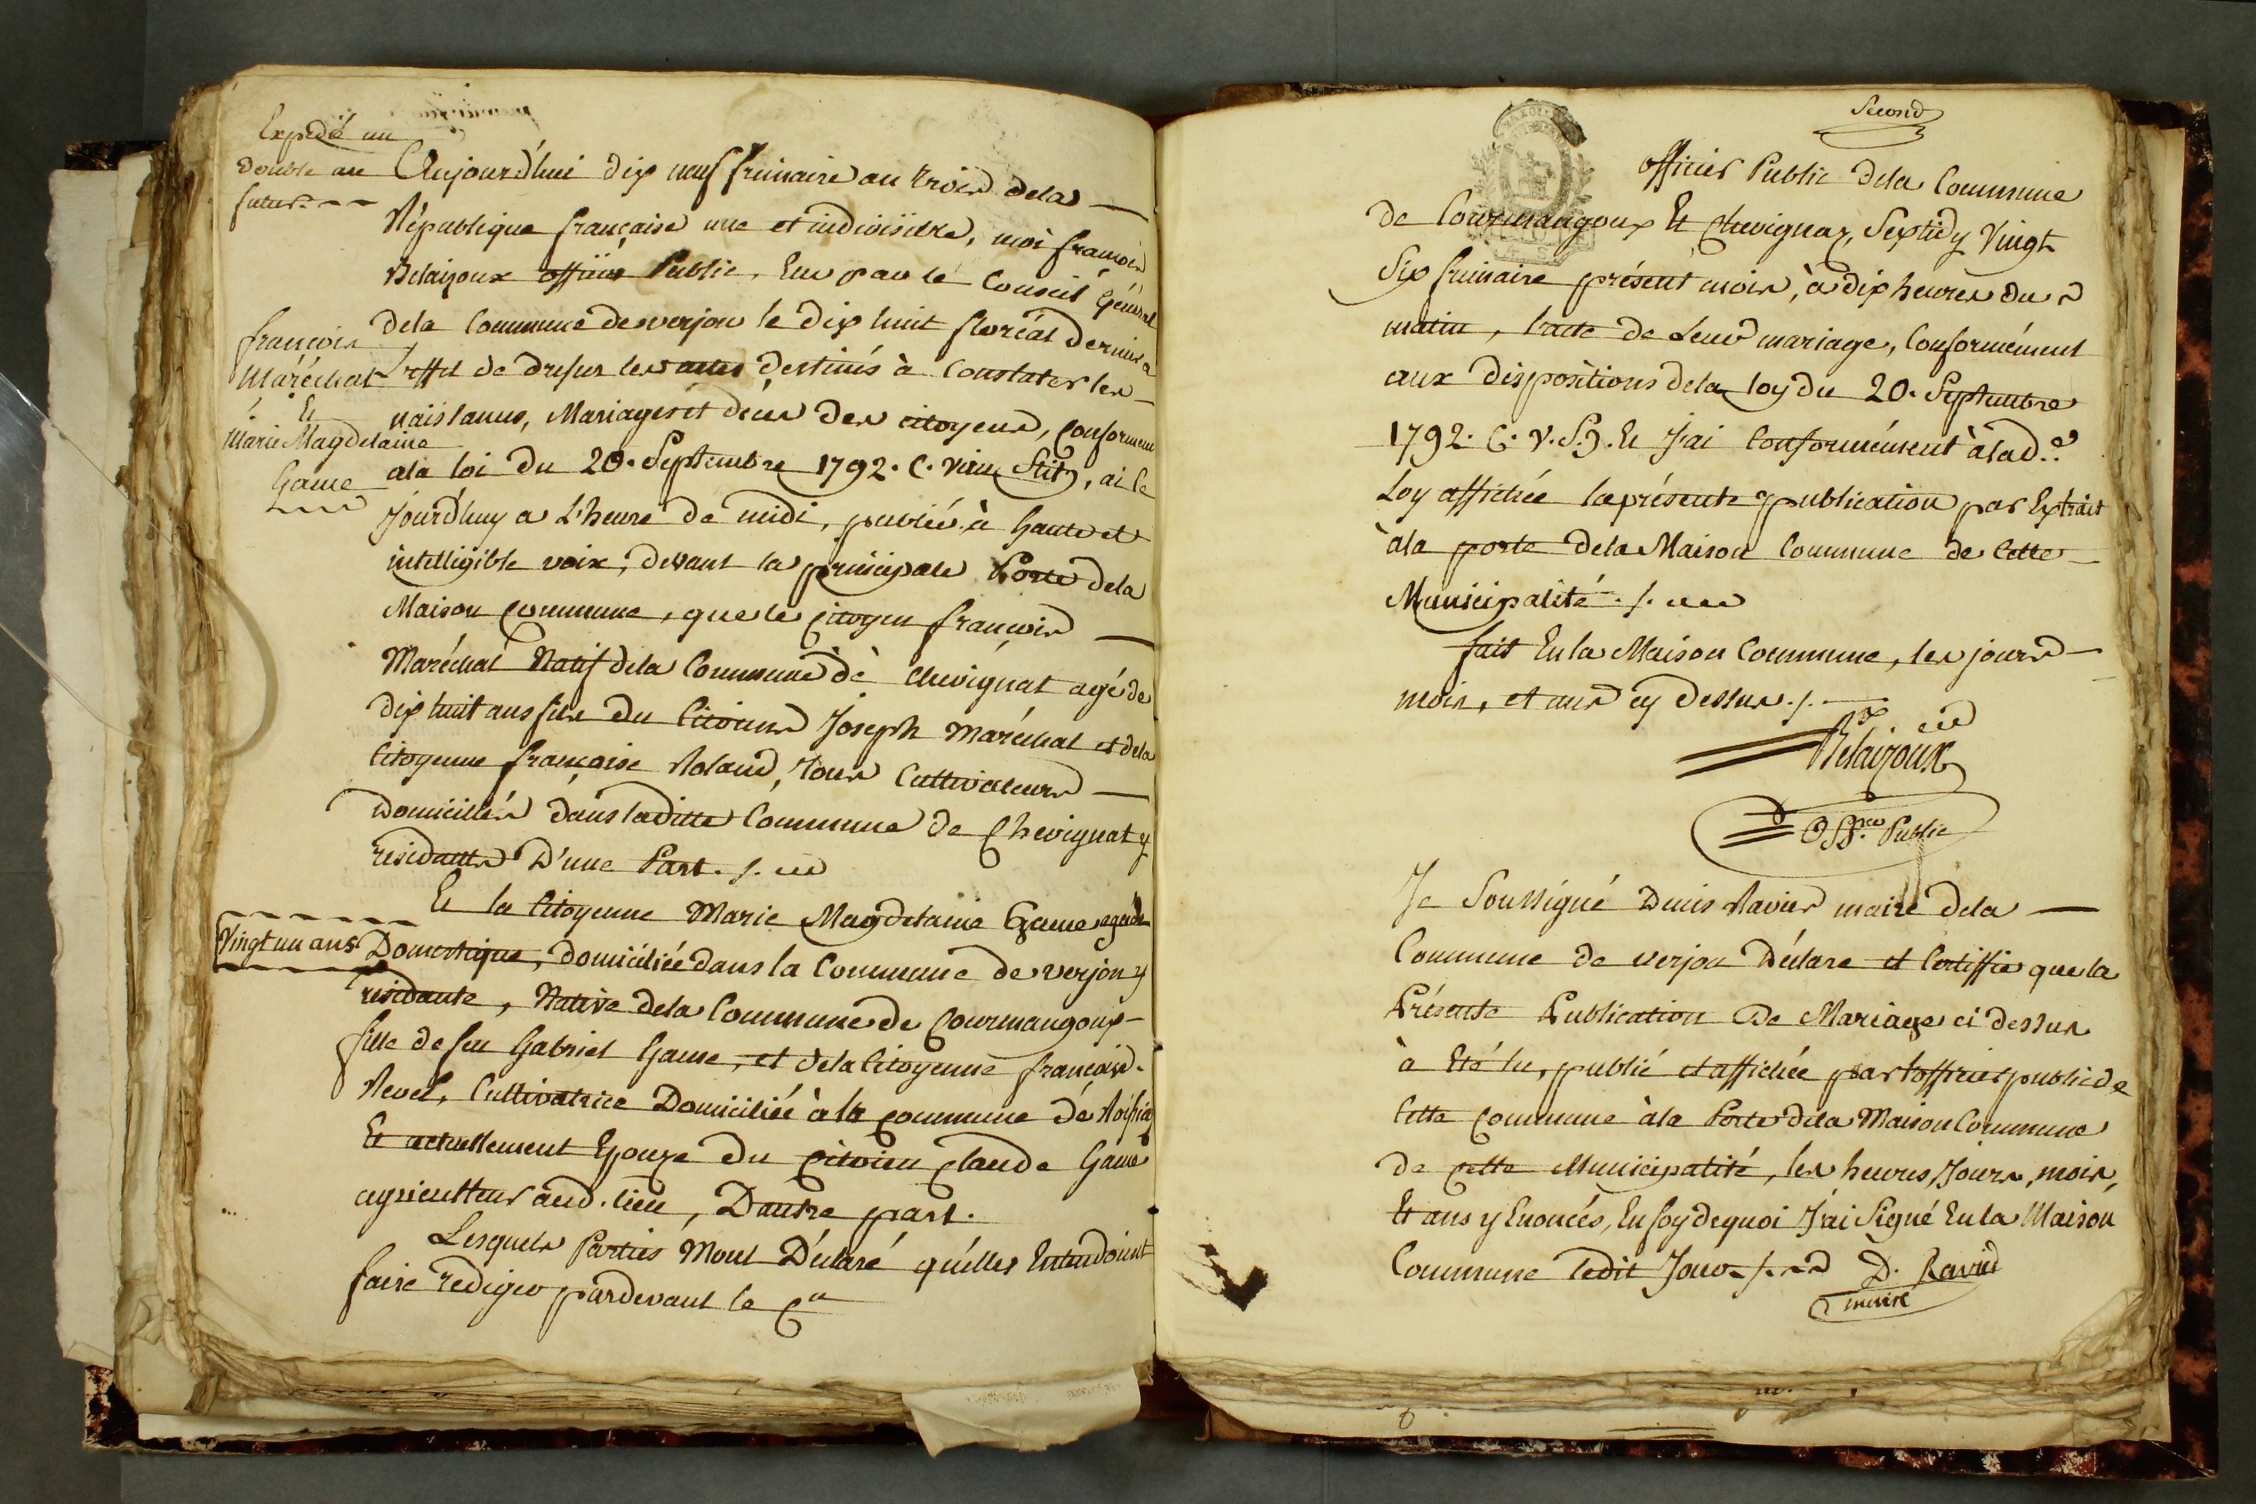 Expedié un
double au
futur
françois
Maréchal
Et
Marie Magdelaine
Game
Aujourd'hui dix neuf frimaire an trois dela
République française une et indivisible, moi françois
Belaizoux officier Public, Elu par le Conseil général
dela Commune de verjon le dix huit floréal dernier a
l'effet de dresser les actes destinés à Constater les
naissances, Mariages et décès des citoyens, Conformem
ala loi du 20. Septembre 1792. C. vieux Stil), ai ce
Jourd'huy a L'heure de midi, publié à haute et
intelligible voix, devant la principale Porte dela
Maison Commune, que le Citoyen françois
Maréchal Natif dela Commune de Chevignat agé de
dix huit ans fils du Citoien Joseph Maréchal et dela
Citoyenne françoise Roland, tous Cultivateurs
Domiciliés dans laditte Commune de Chevignat y
residants D'une Part ./.
Et la Citoyenne Marie Magdelaine Game agée de
Vingt un ans Domestique, domiciliée dans la Commune de verjon y
residante, Native dela Commune de Courmangoux
fille de feu Gabriel Game, et dela Citoyenne françoise
Revel, Cultivatrice Domiciliée à la Commune de
Et actuellement Epouze du Citoien Claude Game
agriculteur aud. lieu, D'autre part.
Lesquels Parties M'ont Déclaré qu'elles Entendoient
faire rediger pardevant le Cn
Second
officier Public dela Commune
de Courmangoux Et Chevignat, Septidy Vingt
Six frimaire présent mois, à dix heures du
matin, l'acte de Leur mariage, Conformément
aux dispositions dela loy du 20. Septembre
1792. C. V. S.). Et J'ai Conformément à lad.e
Loy affichée la présente publication par Extrait
à la porte dela Maison Commune de Cette
Municipalité ./.
fait En la Maison Commune, les jours
mois, et ans cy dessus ./.
Belaizoux
Off.cier Public
Je Soussigné Denis Ravier maire dela
Commune de verjon Déclare et Certiffie que la
Présente Publication de Mariage ci dessus
à Eté lu, publié et affichée par l'officier public de
Cette Commune à la Porte dela Maison Commune
de Cette Municipalité, les heures, Jours, mois,
Et ans y Enoncés, En foy de quoi J'ai Signé En la Maison
Commune ledit Jour ./. D. Ravier
maire